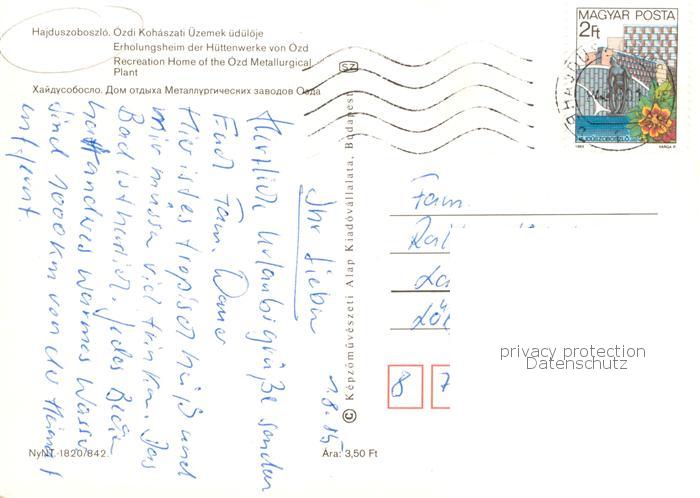 Hajduszoboszló. Ózdi Kohászati Üzemek üdülője
Erholungsheim der Hüttenwerke von Ózd
Recreation Home of the Ózd Metallurgical
Plant
Хайдусобосло. Дом отдыха Металлургических заводов Озда
SZ
MAGYAR POSTA
2Ft
HAJDÚSZOBOSZLÓ
1983
VARGA P.
1.8.85
Ihr Lieben
Herzliche Urlaubsgrüße senden
Euch Fam.
Hier ist es tropisch heiß und
wir müssen viel trinken. Das
Bad ist herrlich. Jedes Becken
hat anderes warmes Wasser
sind 1000 km von der Heimat
entfernt.
© Képzőművészeti Alap Kiadóvállalata, Budapest
Fam.
8 7
privacy protection
Datenschutz
NyNT-1820/842.
Ára: 3,50 Ft